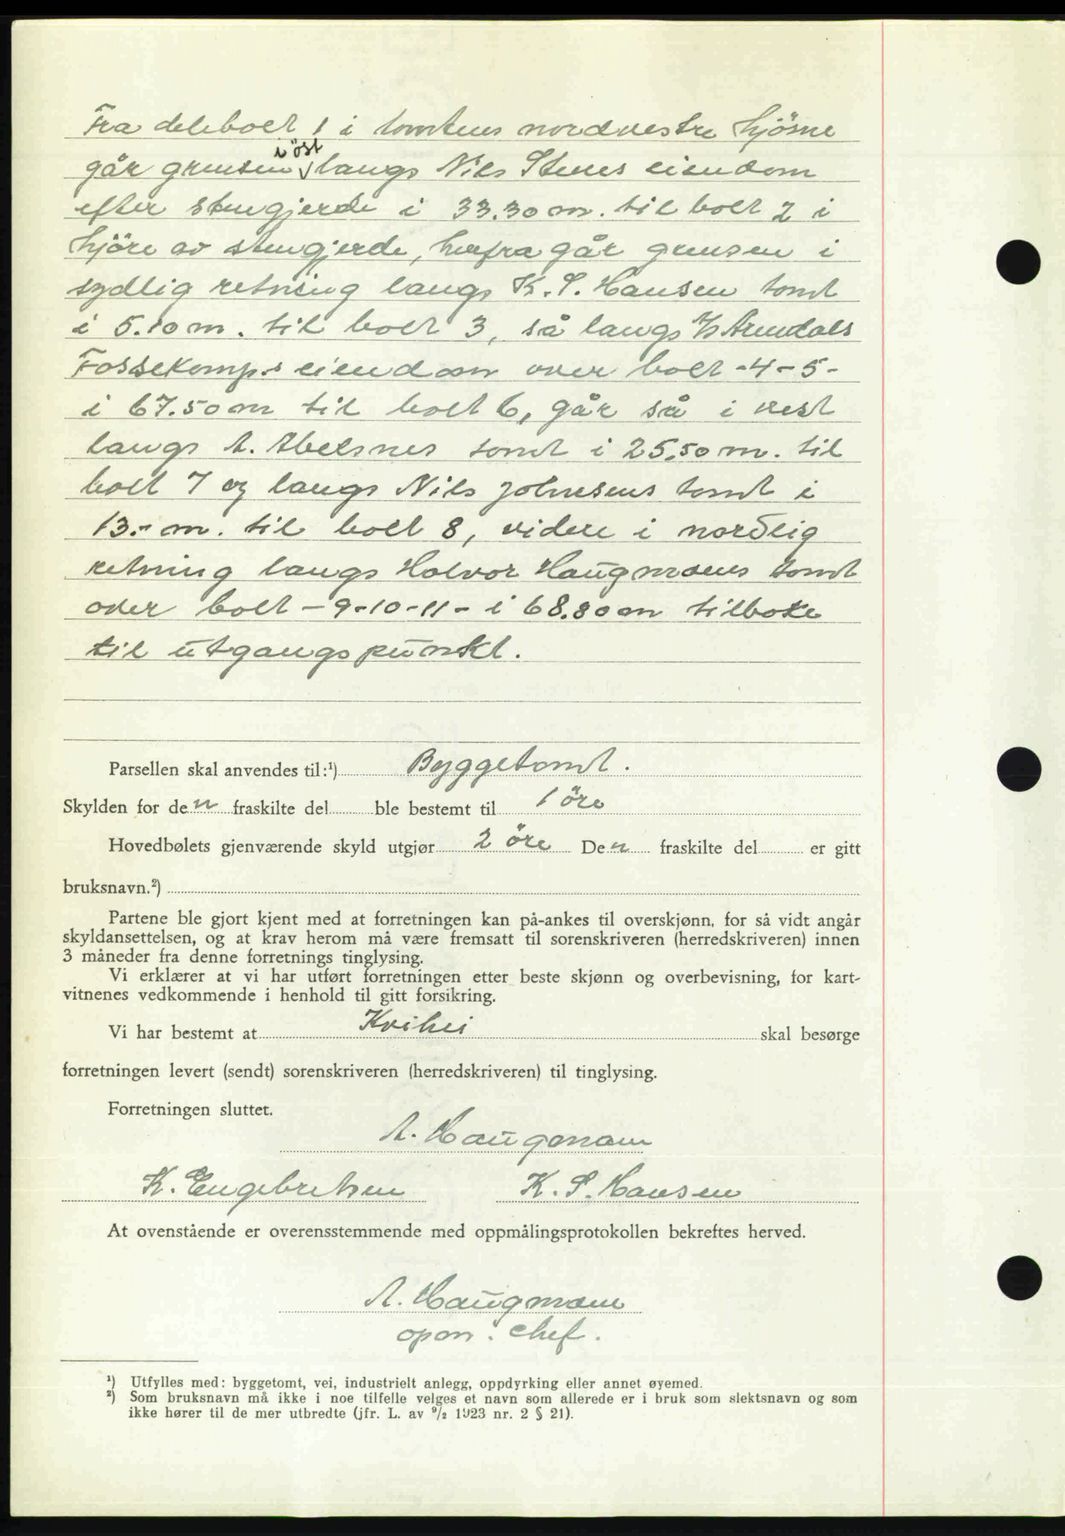 Fra delebolt 1 i tomtens nordvestre hjörne
går grensen i öst langs Nils Stenes eiendom
efter stengjerde i 33.30 m. til bolt 2 i
hjöre av stengjerde, herfra går grensen i
sydlig retning langs K. S. Hansen tomt
i 5.10 m. til bolt 3, så langs A/S Arendals
Fossekomp.s eiendom over bolt -4-5-
i 67.50 m til bolt 6, går så i vest
langs A. Abelsnes tomt i 25,50 m. til
bolt 7 og langs Nils Johnsens tomt i
13.- m. til bolt 8, videre i nordlig
retning langs Halvor Haugmoens tomt
over bolt -9-10-11- i 68.80 m tilbake
til utgangspunkt.
Parsellen skal anvendes til:¹) Byggetomt.
Skylden for den fraskilte del ble bestemt til 1 öre
Hovedbølets gjenværende skyld utgjør 2 öre Den fraskilte del er gitt
bruksnavn.²)
Partene ble gjort kjent med at forretningen kan på-ankes til overskjønn, for så vidt angår
skyldansettelsen, og at krav herom må være fremsatt til sorenskriveren (herredskriveren) innen
3 måneder fra denne forretnings tinglysing.
Vi erklærer at vi har utført forretningen etter beste skjønn og overbevisning, for kart-
vitnenes vedkommende i henhold til gitt forsikring.
Vi har bestemt at skal besørge
forretningen levert (sendt) sorenskriveren (herredskriveren) til tinglysing.
Forretningen sluttet.
A. Haugmoen
K. Engebretsen K. S. Hansen
At ovenstående er overensstemmende med oppmålingsprotokollen bekreftes herved.
A. Haugmoen
opm. chef.
¹) Utfylles med: byggetomt, vei, industrielt anlegg, oppdyrking eller annet øyemed.
²) Som bruksnavn må ikke i noe tilfelle velges et navn som allerede er i bruk som slektsnavn og som
ikke hører til de mer utbredte (jfr. L. av 9/2 1923 nr. 2 § 21).